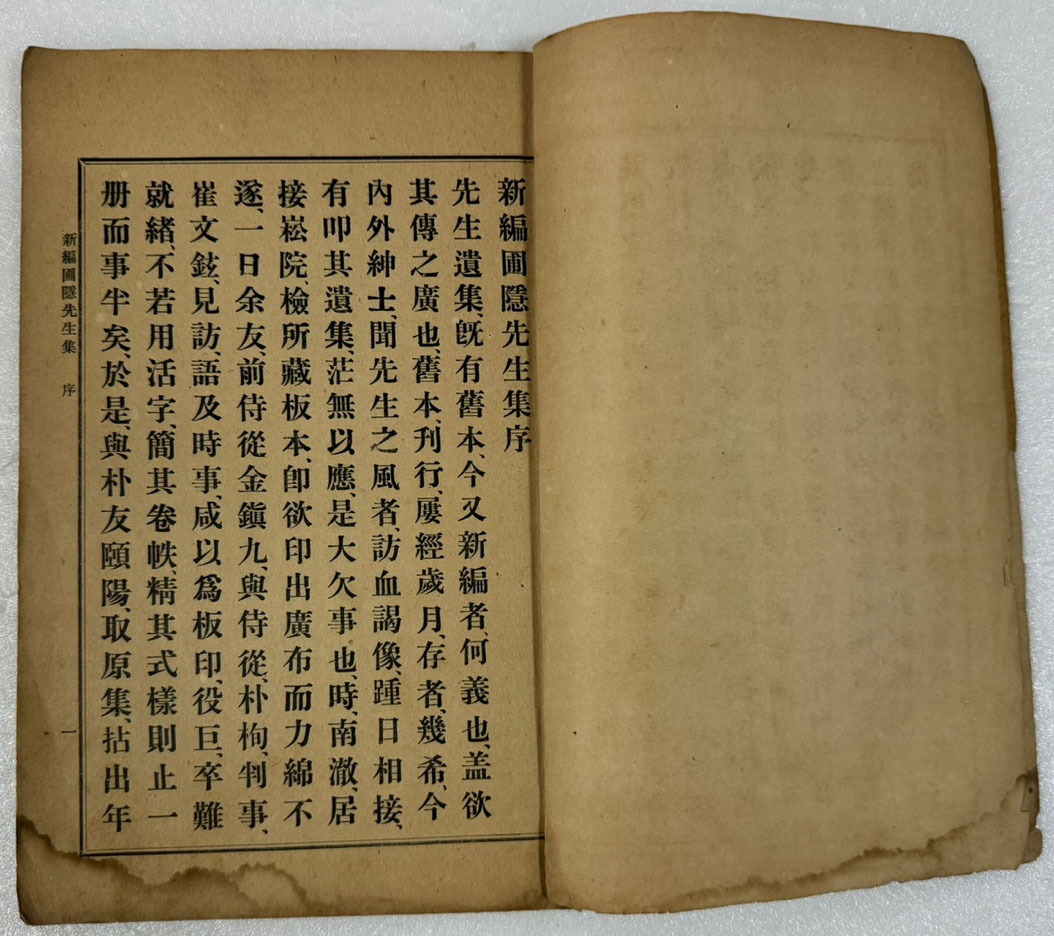 新編圃隱先生集序
先生遺集、旣有舊本、今又新編者、何義也、盖欲
其傳之廣也、舊本、刊行、屢經歲月、存者、幾希、今
內外紳士、聞先生之風者、訪血謁像、踵日相接、
有叩其遺集、茫無以應、是大欠事也、時、南澈、居
接崧院、檢所藏板本、卽欲印出廣布而力綿不
遂、一日余友、前侍從金鎭九、與侍從、朴栒、判事、
崔文鉉、見訪、語及時事、咸以爲板印、役巨、卒難
就緒、不若用活字、簡其卷帙、精其式樣則止一
册而事半矣、於是、與朴友頤陽、取原集、拈出年
新編圃隱先生集　序
一